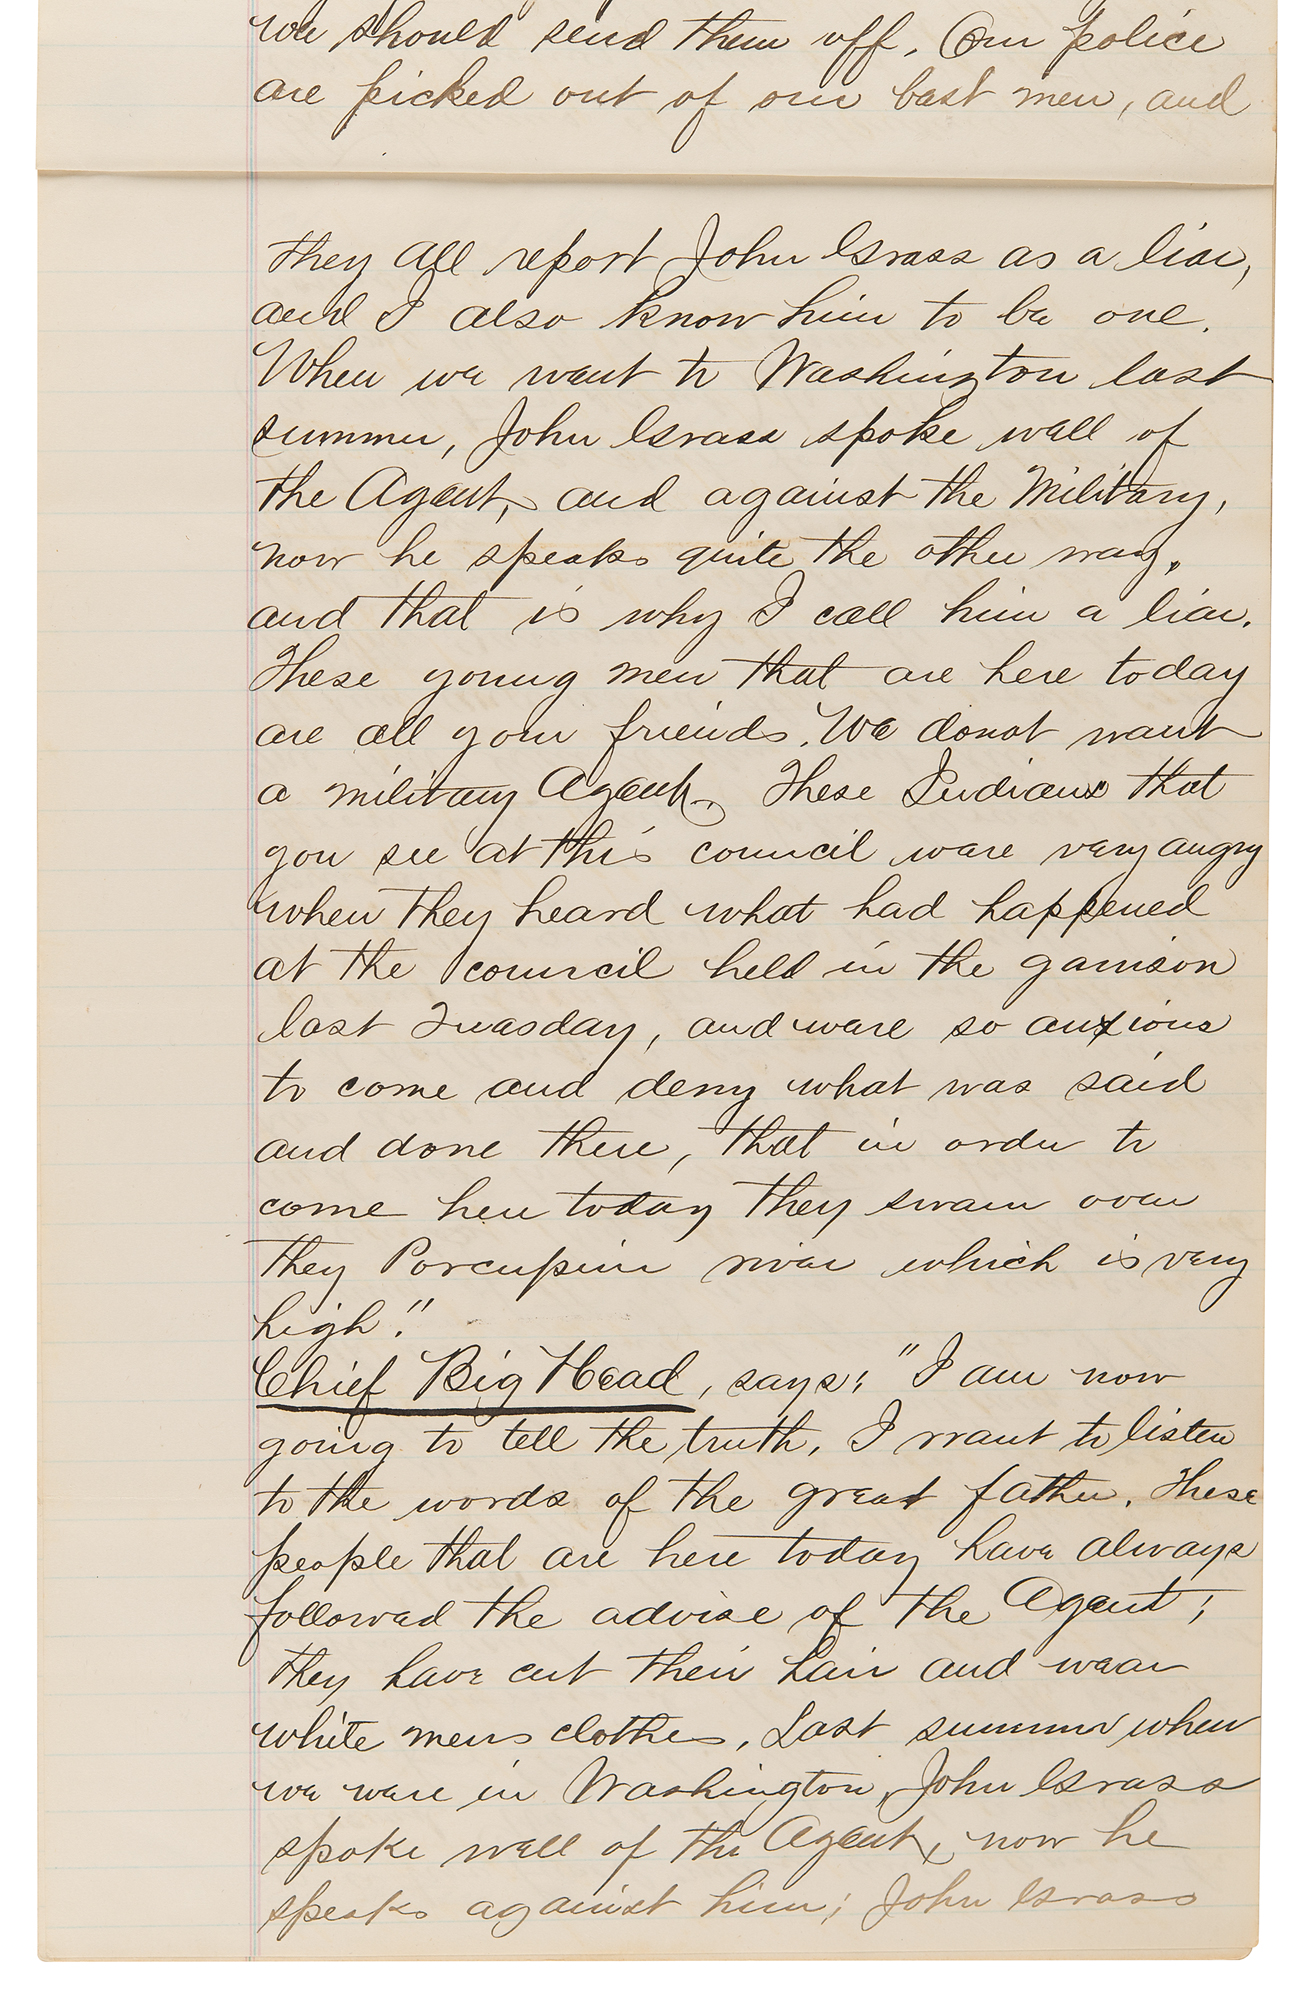 we should send them off. Our police
are picked out of our best men, and
they all report John Grass as a liar,
and I also know him to be one.
When we went to Washington last
summer, John Grass spoke well of
the Agent, and against the Military,
now he speaks quite the other way,
and that is why I call him a liar.
These young men that are here today
are all your friends. We donot want
a military Agent. These Indians that
you see at this council were very angry
when they heard what had happened
at the council held in the garrison
last Tuesday, and were so anxious
to come and deny what was said
and done there, that in order to
come here today they swam over
they Porcupine river which is very
high."
Chief Big Head, says: "I am now
going to tell the truth, I want to listen
to the words of the great father. These
people that are here today have always
followed the advise of the Agent;
they have cut their hair and wear
white mens clothes. Last summer when
we were in Washington, John Grass
spoke well of the Agent, now he
speaks against him; John Grass